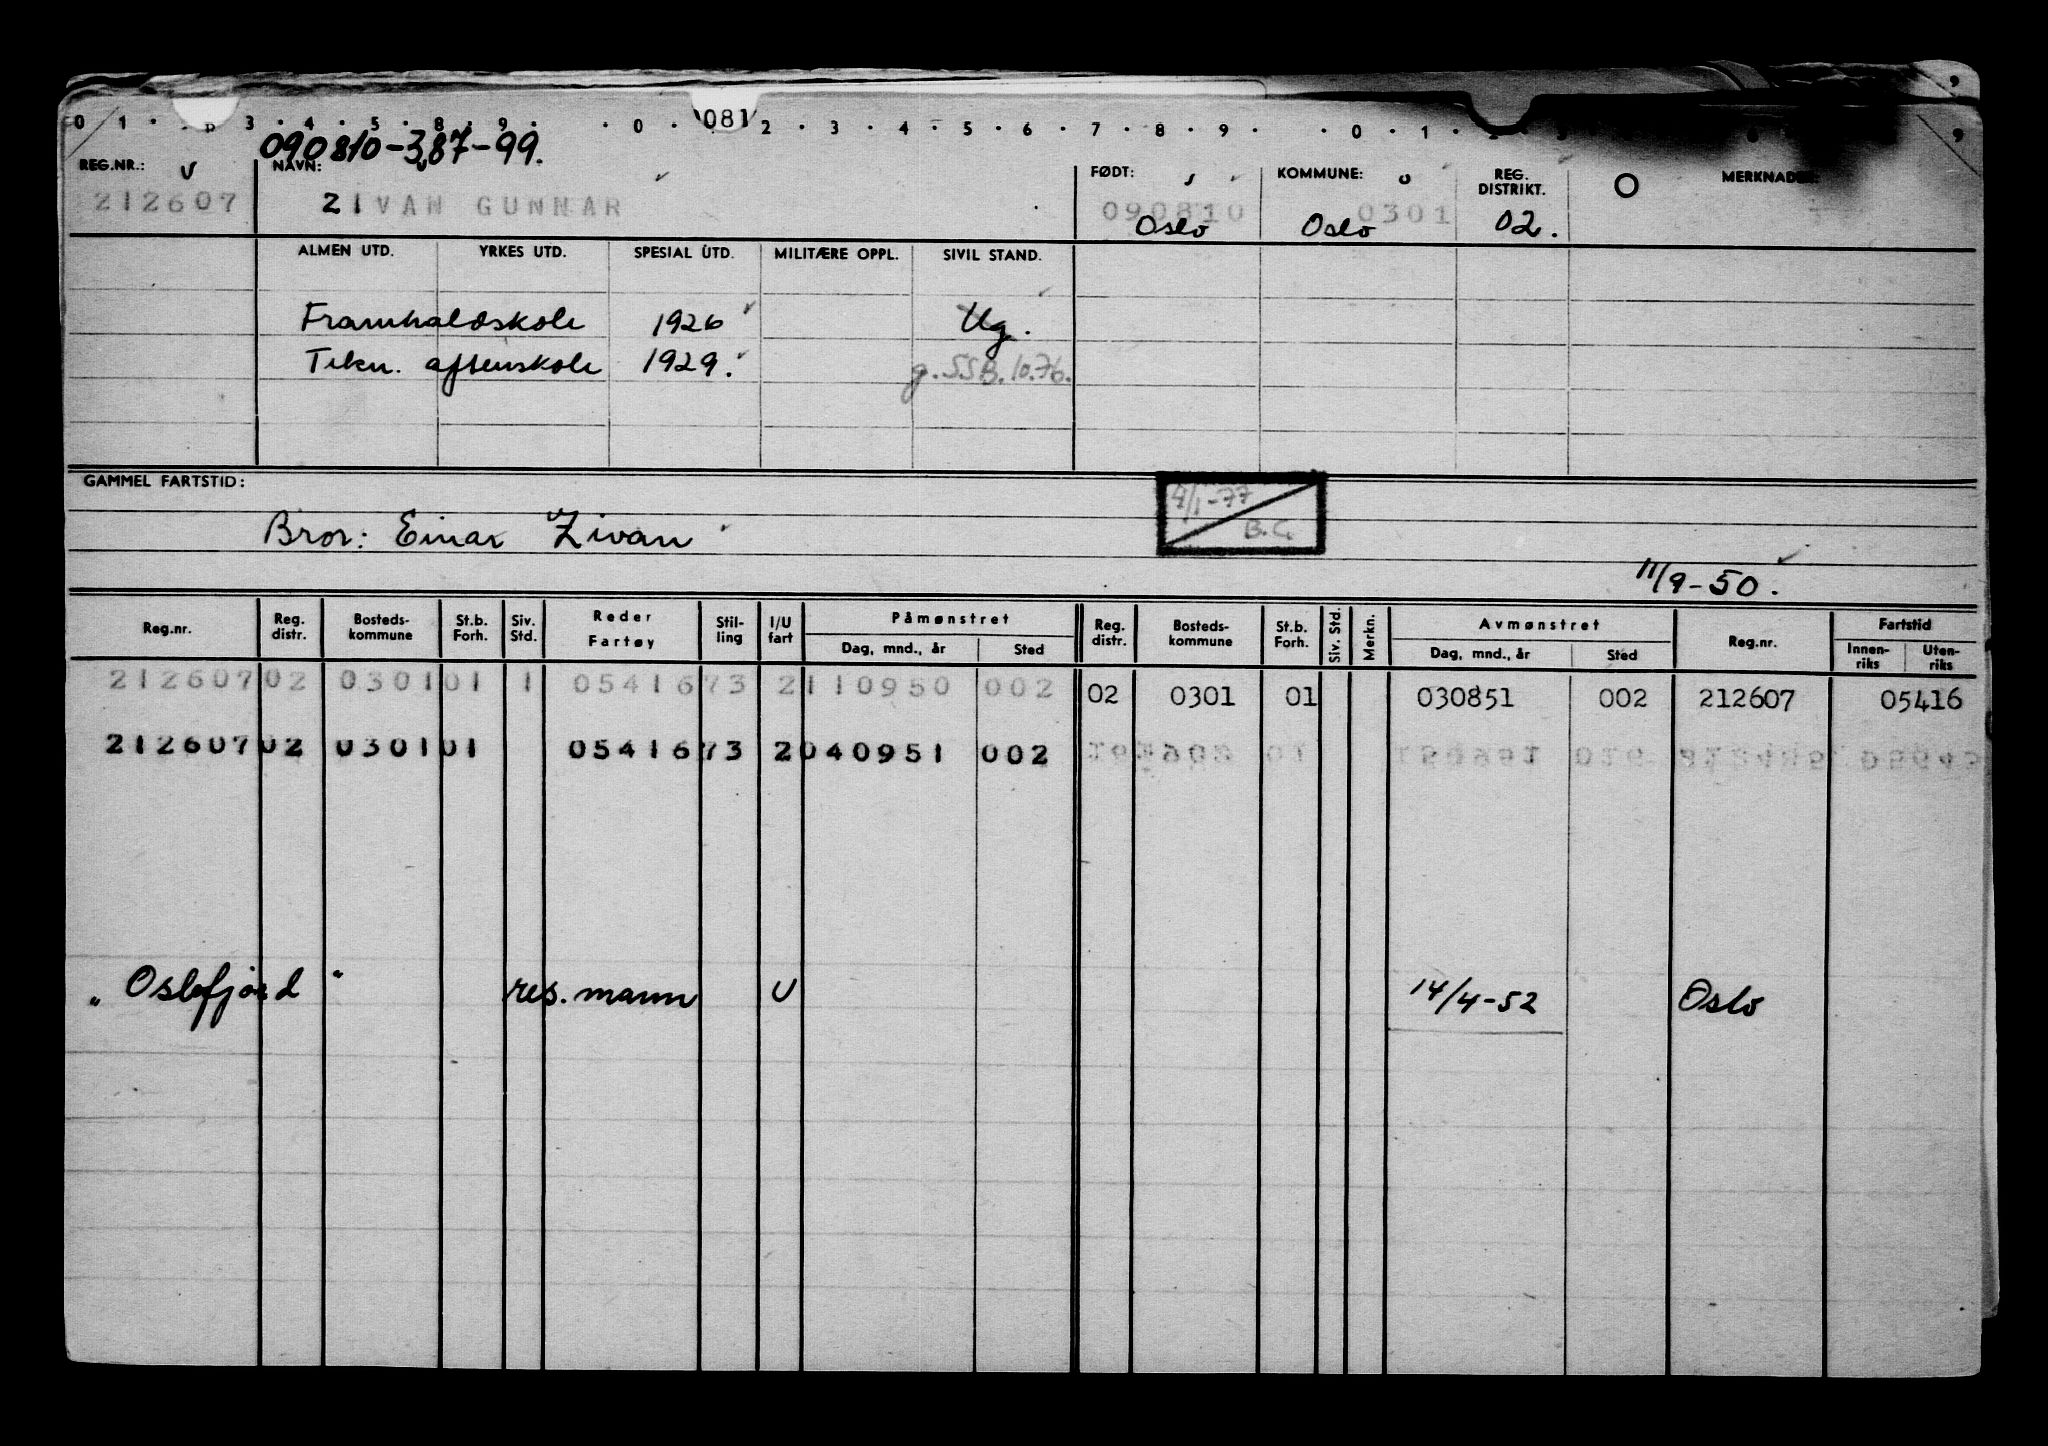 0 1 · 3 · 4 · 5 · 8 · 9 · · 0 · 081 2 · 3 · 4 · 5 · 6 · 7 · 8 · 9 · · 0 · 1 · 9
090810-3,87-99.
REG.NR.: NAVN: FØDT: KOMMUNE: REG. DISTRIKT. MERKNADER:
212607 ZIVAN GUNNAR 090810 0301
Oslo Oslo 02.
ALMEN UTD. YRKES UTD. SPESIAL UTD. MILITÆRE OPPL. SIVIL STAND.
Framhaldskole 1926 Ug.
Tekn. aftenskole 1929. g. SSB. 10.76.
GAMMEL FARTSTID: 4/1-77
Bror: Einar Zivan B.C.
11/9-50.
Reg.nr. Reg. distr. Bosteds-kommune St.b. Forh. Siv. Std. Reder Fartøy Stil-ling I/U fart Påmønstret Dag, mnd., år Sted Reg. distr. Bosteds-kommune St.b. Forh. Siv. Std. Merkn. Avmønstret Dag, mnd., år Sted Reg.nr. Fartstid Innen-riks Uten-riks
212607 02 0301 01 1 05416 73 2 110950 002 02 0301 01 030851 002 212607 05416
212607 02 0301 01 05416 73 2 040951 002
„Oslofjord" res. mann U 14/4-52 Oslo